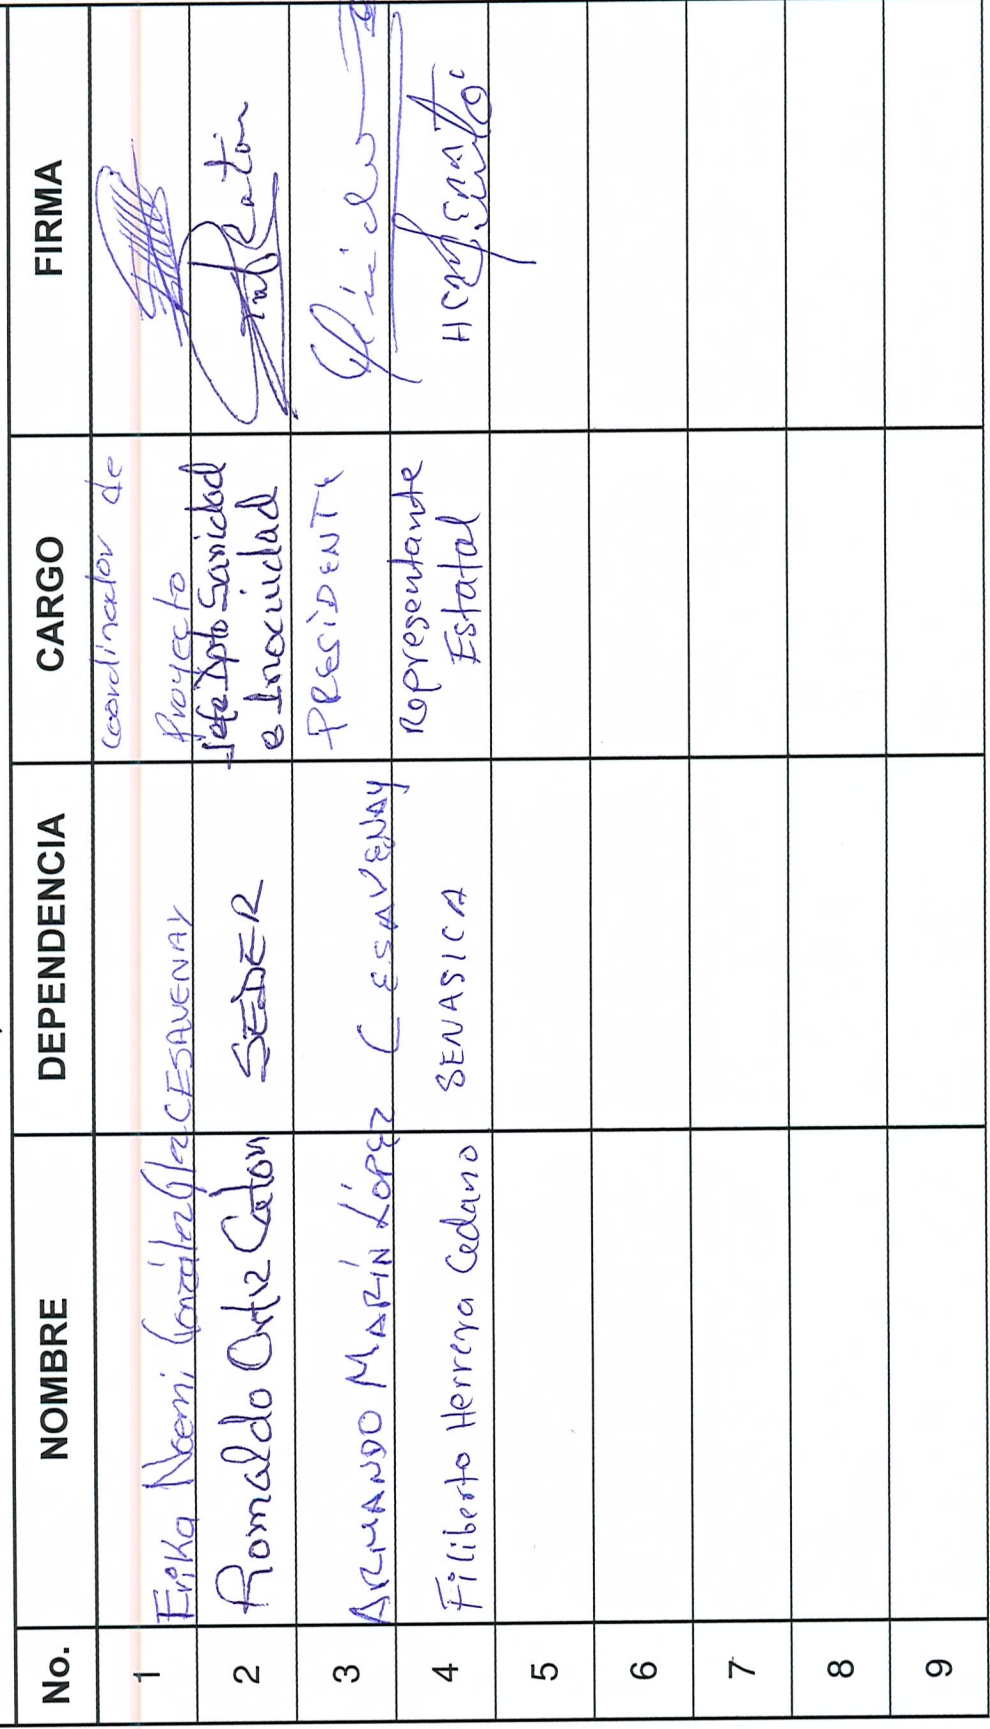 No. NOMBRE DEPENDENCIA CARGO FIRMA
1 Erika Noemi González Glez CESAVENAY Coordinador de
Proyecto
2 Romaldo Ortiz Caton SEDER Jefe Dpto Sanidad
e Inocuidad
3 ARMANDO MARÍN LÓPEZ CESAVENAY PRESIDENTE
4 Filiberto Herrera Cedano SENASICA Representante
Estatal
5
6
7
8
9